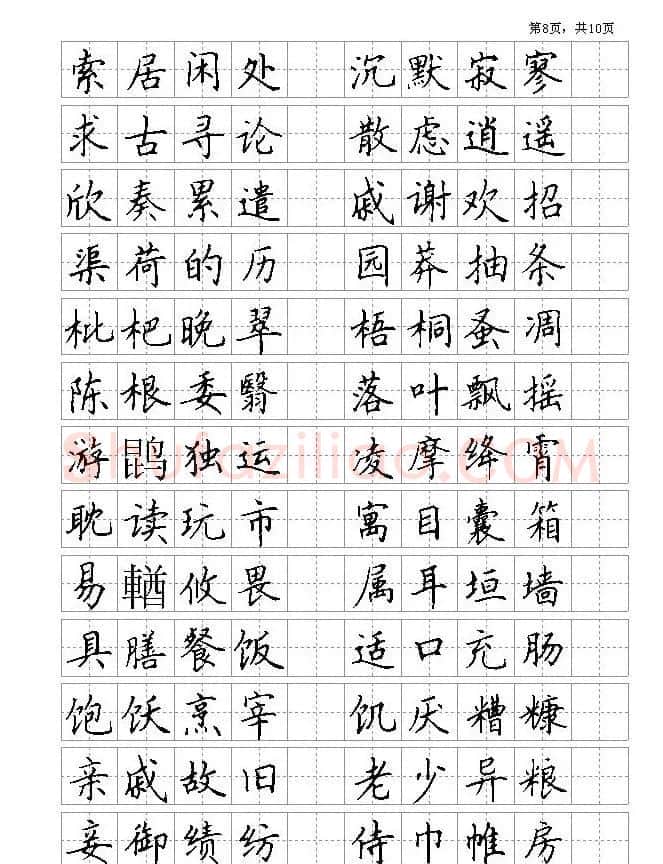 第8页，共10页
索居闲处 沉默寂寥
求古寻论 散虑逍遥
欣奏累遣 戚谢欢招
渠荷的历 园莽抽条
枇杷晚翠 梧桐蚤凋
陈根委翳 落叶飘摇
游鹍独运 凌摩绛霄
耽读玩市 寓目囊箱
易輶攸畏 属耳垣墙
具膳餐饭 适口充肠
饱饫烹宰 饥厌糟糠
亲戚故旧 老少异粮
妾御绩纺 侍巾帷房
Shufaziliao.COM